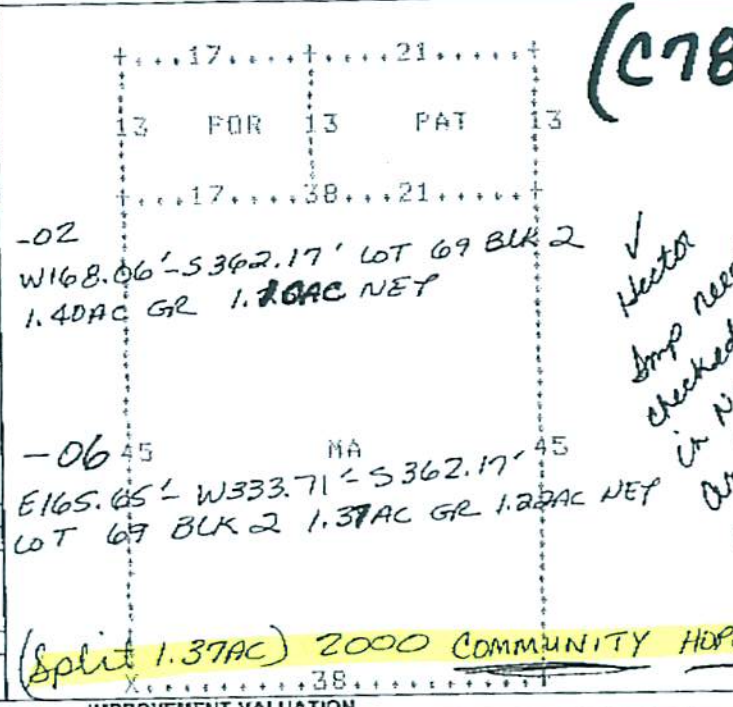 (C78
+....17....+....21.....+
13 POR 13 PAT 13
+...17....38...21.....+
-02
W168.06'-S362.17' LOT 69 BLK 2
1.40AC GR NET
✓
Hector
Imp
checked
in
-06 45 MA 45
E165.65'-W333.71'-S362.17'
LOT 69 BLK 2 1.37AC GR 1.22AC NET
(Split 1.37AC) 2000 COMMUNITY HOPE
X.........38...........+
IMPROVEMENT VALUATION